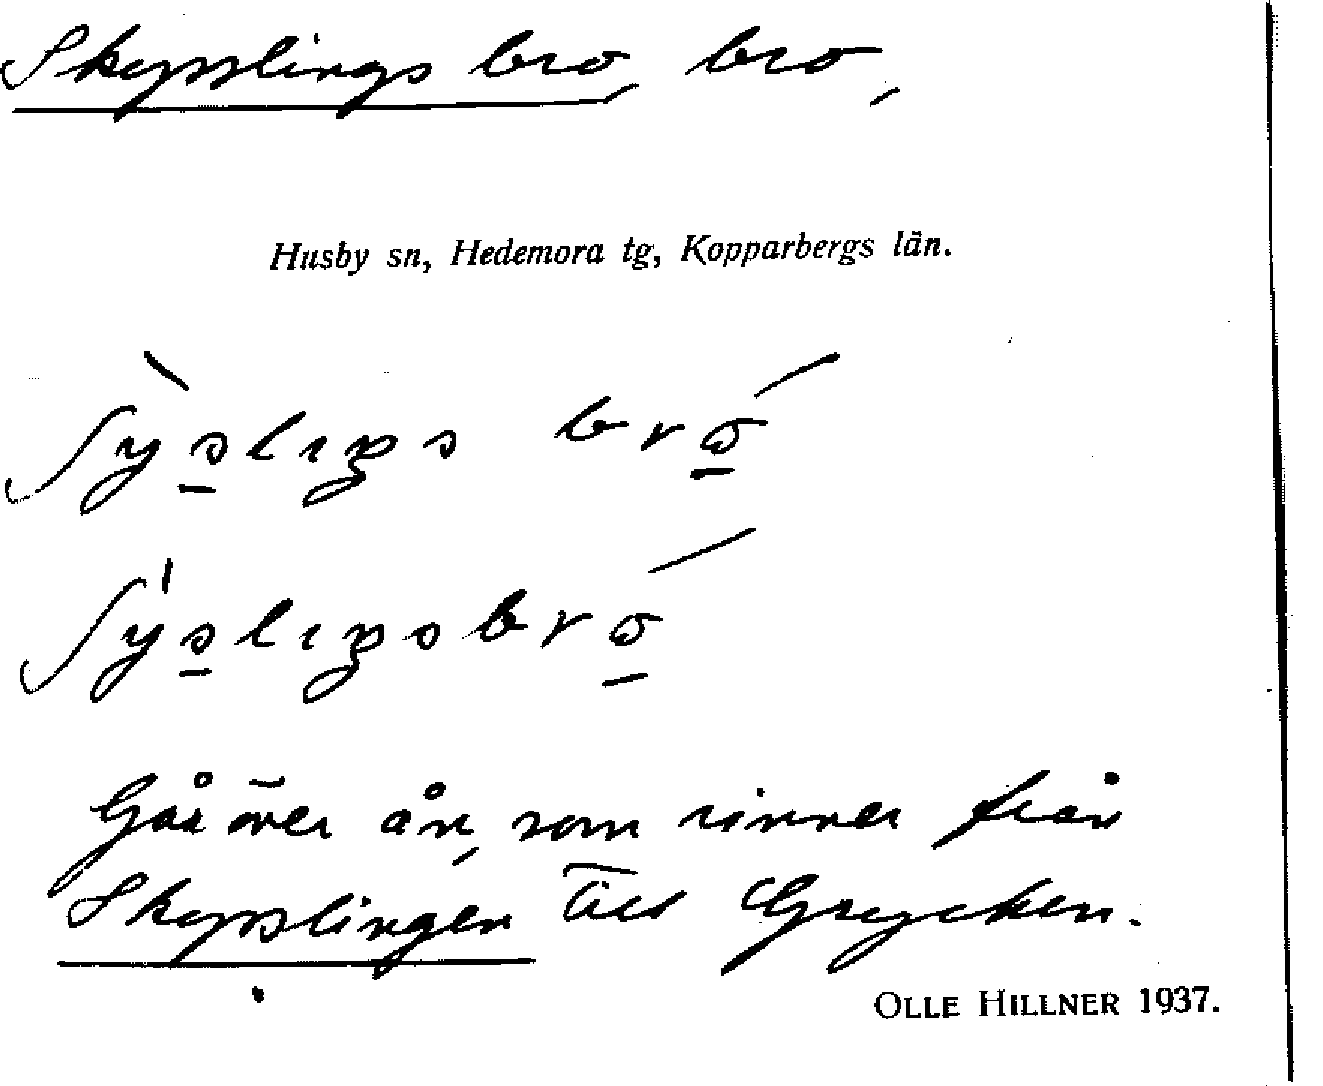 Skypslings bro, bro,
Husby sn, Hedemora tg, Kopparbergs län.
Går över ån, som rinner från
Skypslingen till Grycken.
OLLE HILLNER 1937.